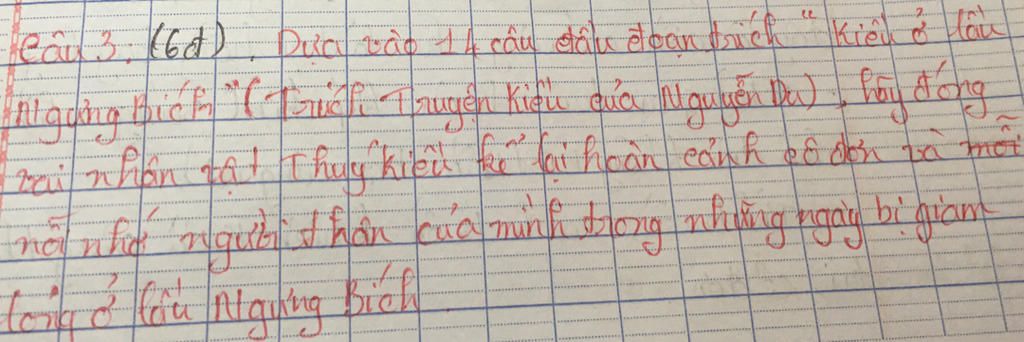 Câu 3. (6đ). Dựa vào 14 câu đầu đoạn trích "Kiều ở lầu
Ngưng Bích" (Trích Truyện Kiều của Nguyễn Du), hãy đóng
vai nhân vật Thuý Kiều kể lại hoàn cảnh cô đơn và mỗi
nỗi nhớ người thân của mình trong những ngày bị giam
lỏng ở lầu Ngưng Bích